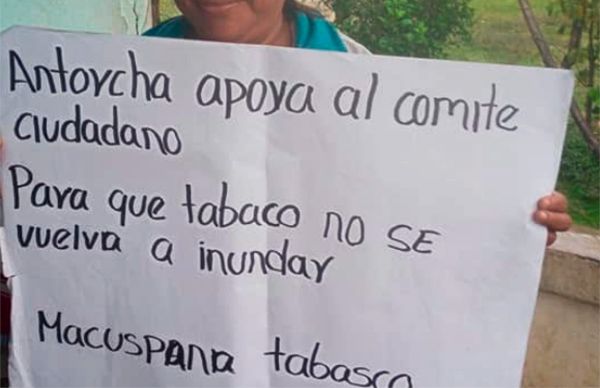 Antorcha apoya al comite
ciudadano
Para que tabaco no SE
vuelva a inundar
Macuspana tabasco